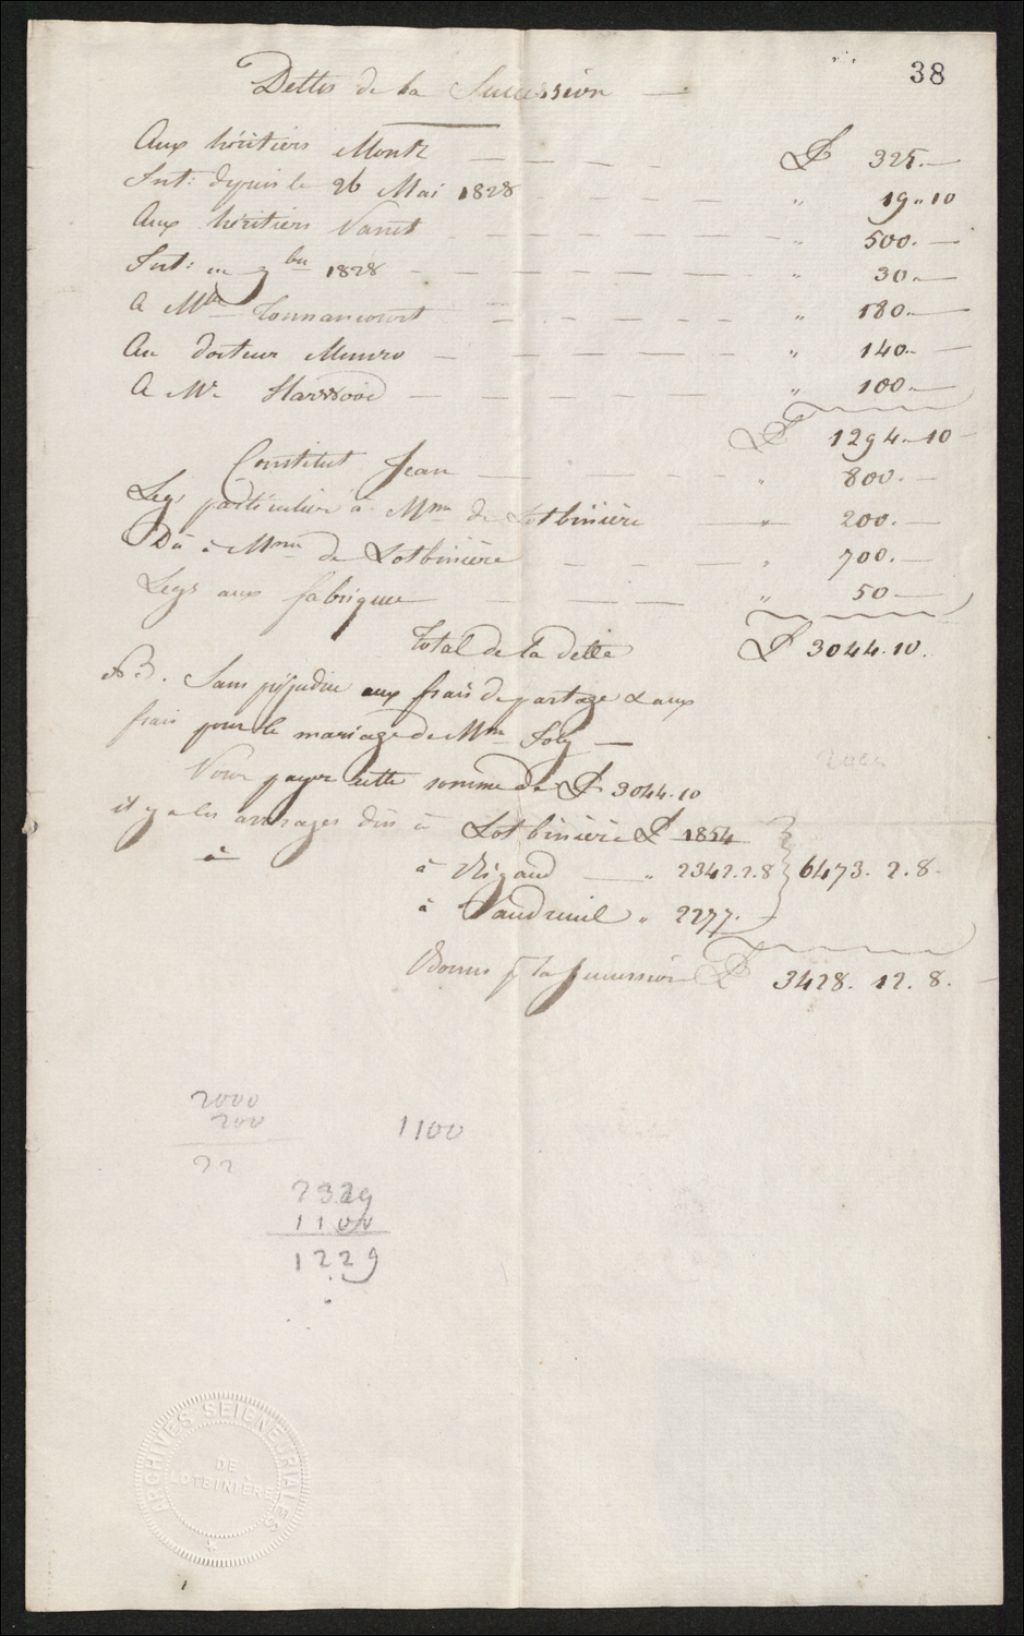 38
Dettes de la Succession
Aux héritiers Montz £ 325.
Int: depuis le 26 Mai 1828 " 19..10
Aux héritiers " 500.
Int: en 9bre 1828 " 30
A Mlle Tonnancourt " 180
Au docteur Munro " 140
A Mr Harwood " 100
£ 1294..10
Constitut Jean " 800.
Legs particulier à Mme de Lotbinière " 200.
Dû à Mme de Lotbinière " 700.
Legs aux fabriques " 50
Total de la dette £ 3044.10.
N B. Sans préjudice aux frais de partage & aux
frais pour le mariage de Mme Joly
Pour payer cette somme de £ 3044.10
il y a les arrérages dus à Lotbinière £ 1854
à
à Rigaud " 2342.2.8 } 6473. 2.8.
à Vaudreuil " 2277.
la Succession £ 3428. 12. 8.
2000
200
22
1100
2329
1100
1229
ARCHIVES SEIGNEURIALES
DE
LOTBINIÈRE